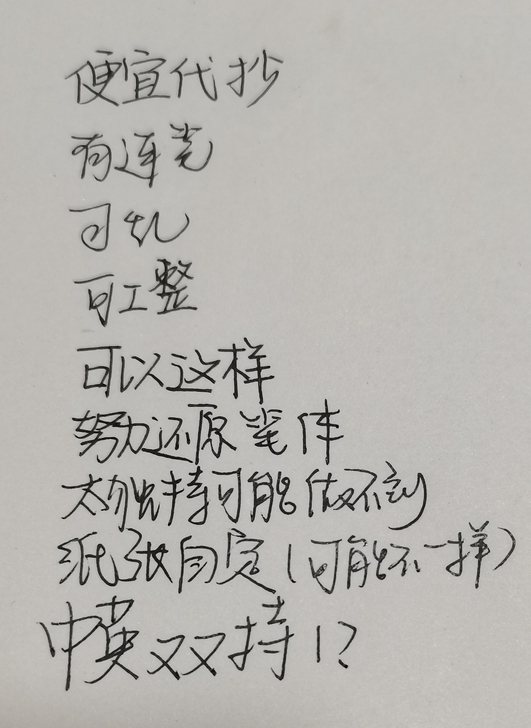 便宜代抄
有连笔
可乱
可工整
可以这样
努力还原笔体
太独特可能做不到
纸张自定(可能不一样)
中英双双持!?